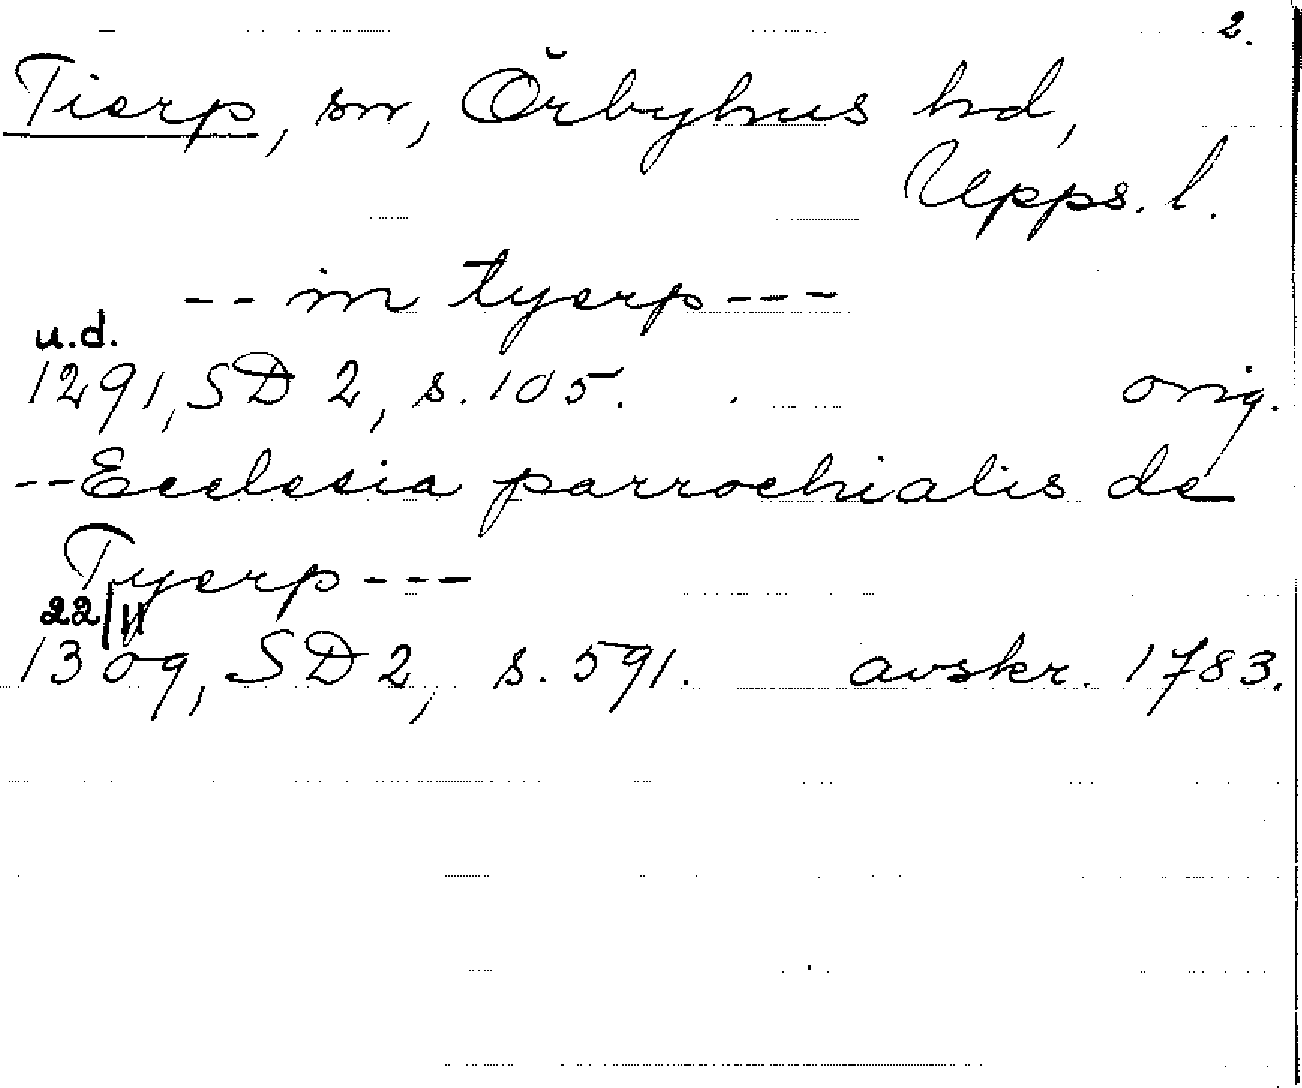 2.
Tierp, sn, Örbyhus hd,
Upps. l.
-- in tyerp ---
u.d.
1291, SD 2, s. 105. orig.
-- Ecclesia parrochialis de
Tyerp ---
22/11
1309, SD 2, s. 591. avskr. 1783.